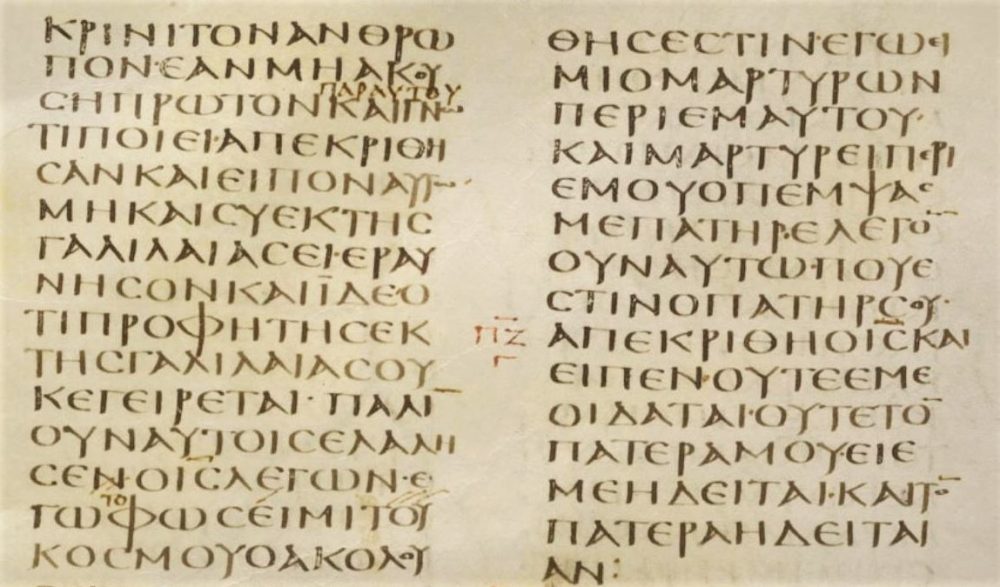 ΚΡΙΝΙΤΟΝΑΝΘΡΩ
ΠΟΝ·ΕΑΝΜΗΑΚΟΥ
ΠΑΡΑΥΤΟΥ
ϹΗΠΡΩΤΟΝΚΑΙΓΝ
ΤΙΠΟΙΕΙ·ΑΠΕΚΡΙΘΗ
ϹΑΝΚΑΙΕΙΠΟΝΑΥΤ
ΜΗΚΑΙϹΥΕΚΤΗϹ
ΓΑΛΙΛΑΙΑϹΕΙ·ΕΡΑΥ
ΝΗϹΟΝΚΑΙΪΔΕΟ
ΤΙΠΡΟΦΗΤΗϹΕΚ
ΤΗϹΓΑΛΙΛΑΙΑϹΟΥ
ΚΕΓΕΙΡΕΤΑΙ· ΠΑΛΙ̅
ΟΥΝΑΥΤΟΙϹΕΛΑΛΗ
ϹΕΝ·ΟΙ̅Ϲ̅ΛΕΓΩΝ·Ε
ΤΟ
ΓΩΦΩϹΕΙΜΙΤΟΥ
ΚΟϹΜΟΥΟΑΚΟΛΟΥ
ΘΗϹΕϹΤΙΝ·ΕΓΩΕΙ
ΜΙΟΜΑΡΤΥΡΩΝ
ΠΕΡΙΕΜΑΥΤΟΥ·
ΚΑΙΜΑΡΤΥΡΕΙΠΕΡΙ
ΕΜΟΥΟΠΕΜΨΑϹ
ΜΕΠΑΤΗΡ·ΕΛΕΓΟ̅
ΟΥΝΑΥΤΩ·ΠΟΥΕ
ϹΤΙΝΟΠΑΤΗΡϹΟΥ·
Π̅Ζ̅
Γ
ΑΠΕΚΡΙΘΗΟΙ̅Ϲ̅ΚΑΙ
ΕΙΠΕΝ·ΟΥΤΕΕΜΕ
ΟΙΔΑΤΑΙ·ΟΥΤΕΤΟ̅
ΠΑΤΕΡΑΜΟΥ·ΕΙΕ
ΜΕΗΔΕΙΤΑΙ·ΚΑΙΤΟ̅
ΠΑΤΕΡΑΗΔΕΙΤΑΙ
ΑΝ: